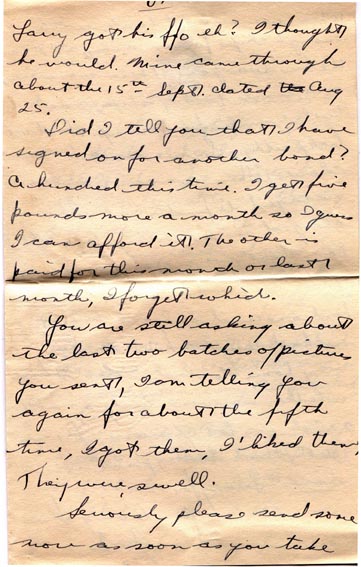 Larry got his f/o eh? I thought
he would. Mine came through
about the 15th Sept. dated the Aug
25.
Did I tell you that I have
signed on for another bond?
a hundred this time. I get five
pounds more a month so I guess
I can afford it. The other is
paid for this month or last
month, I forget which.
You are still asking about
the last two batches of pictures
you sent, I am telling you
again for about the fifth
time, I got them, I liked them,
They were swell.
Seriously please send some
more as soon as you take